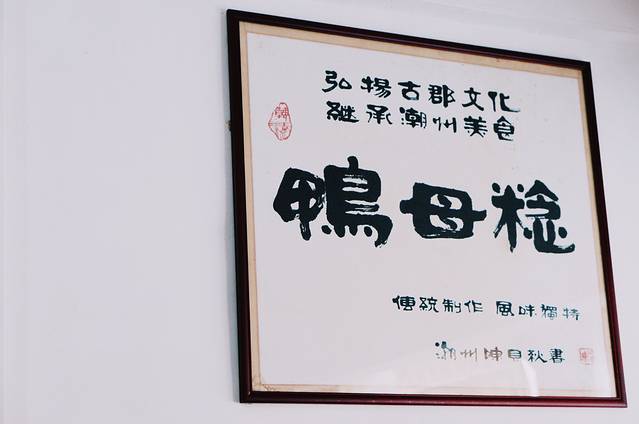 弘揚古郡文化
繼承潮州美食
鴨母稔
傳統制作 風味獨特
潮州書